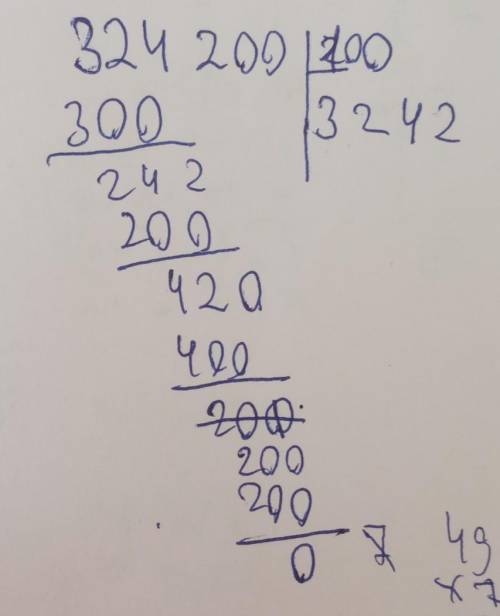 324 200 100
300 3242
242
200
420
400
200
200
200
0 7 49
x 7